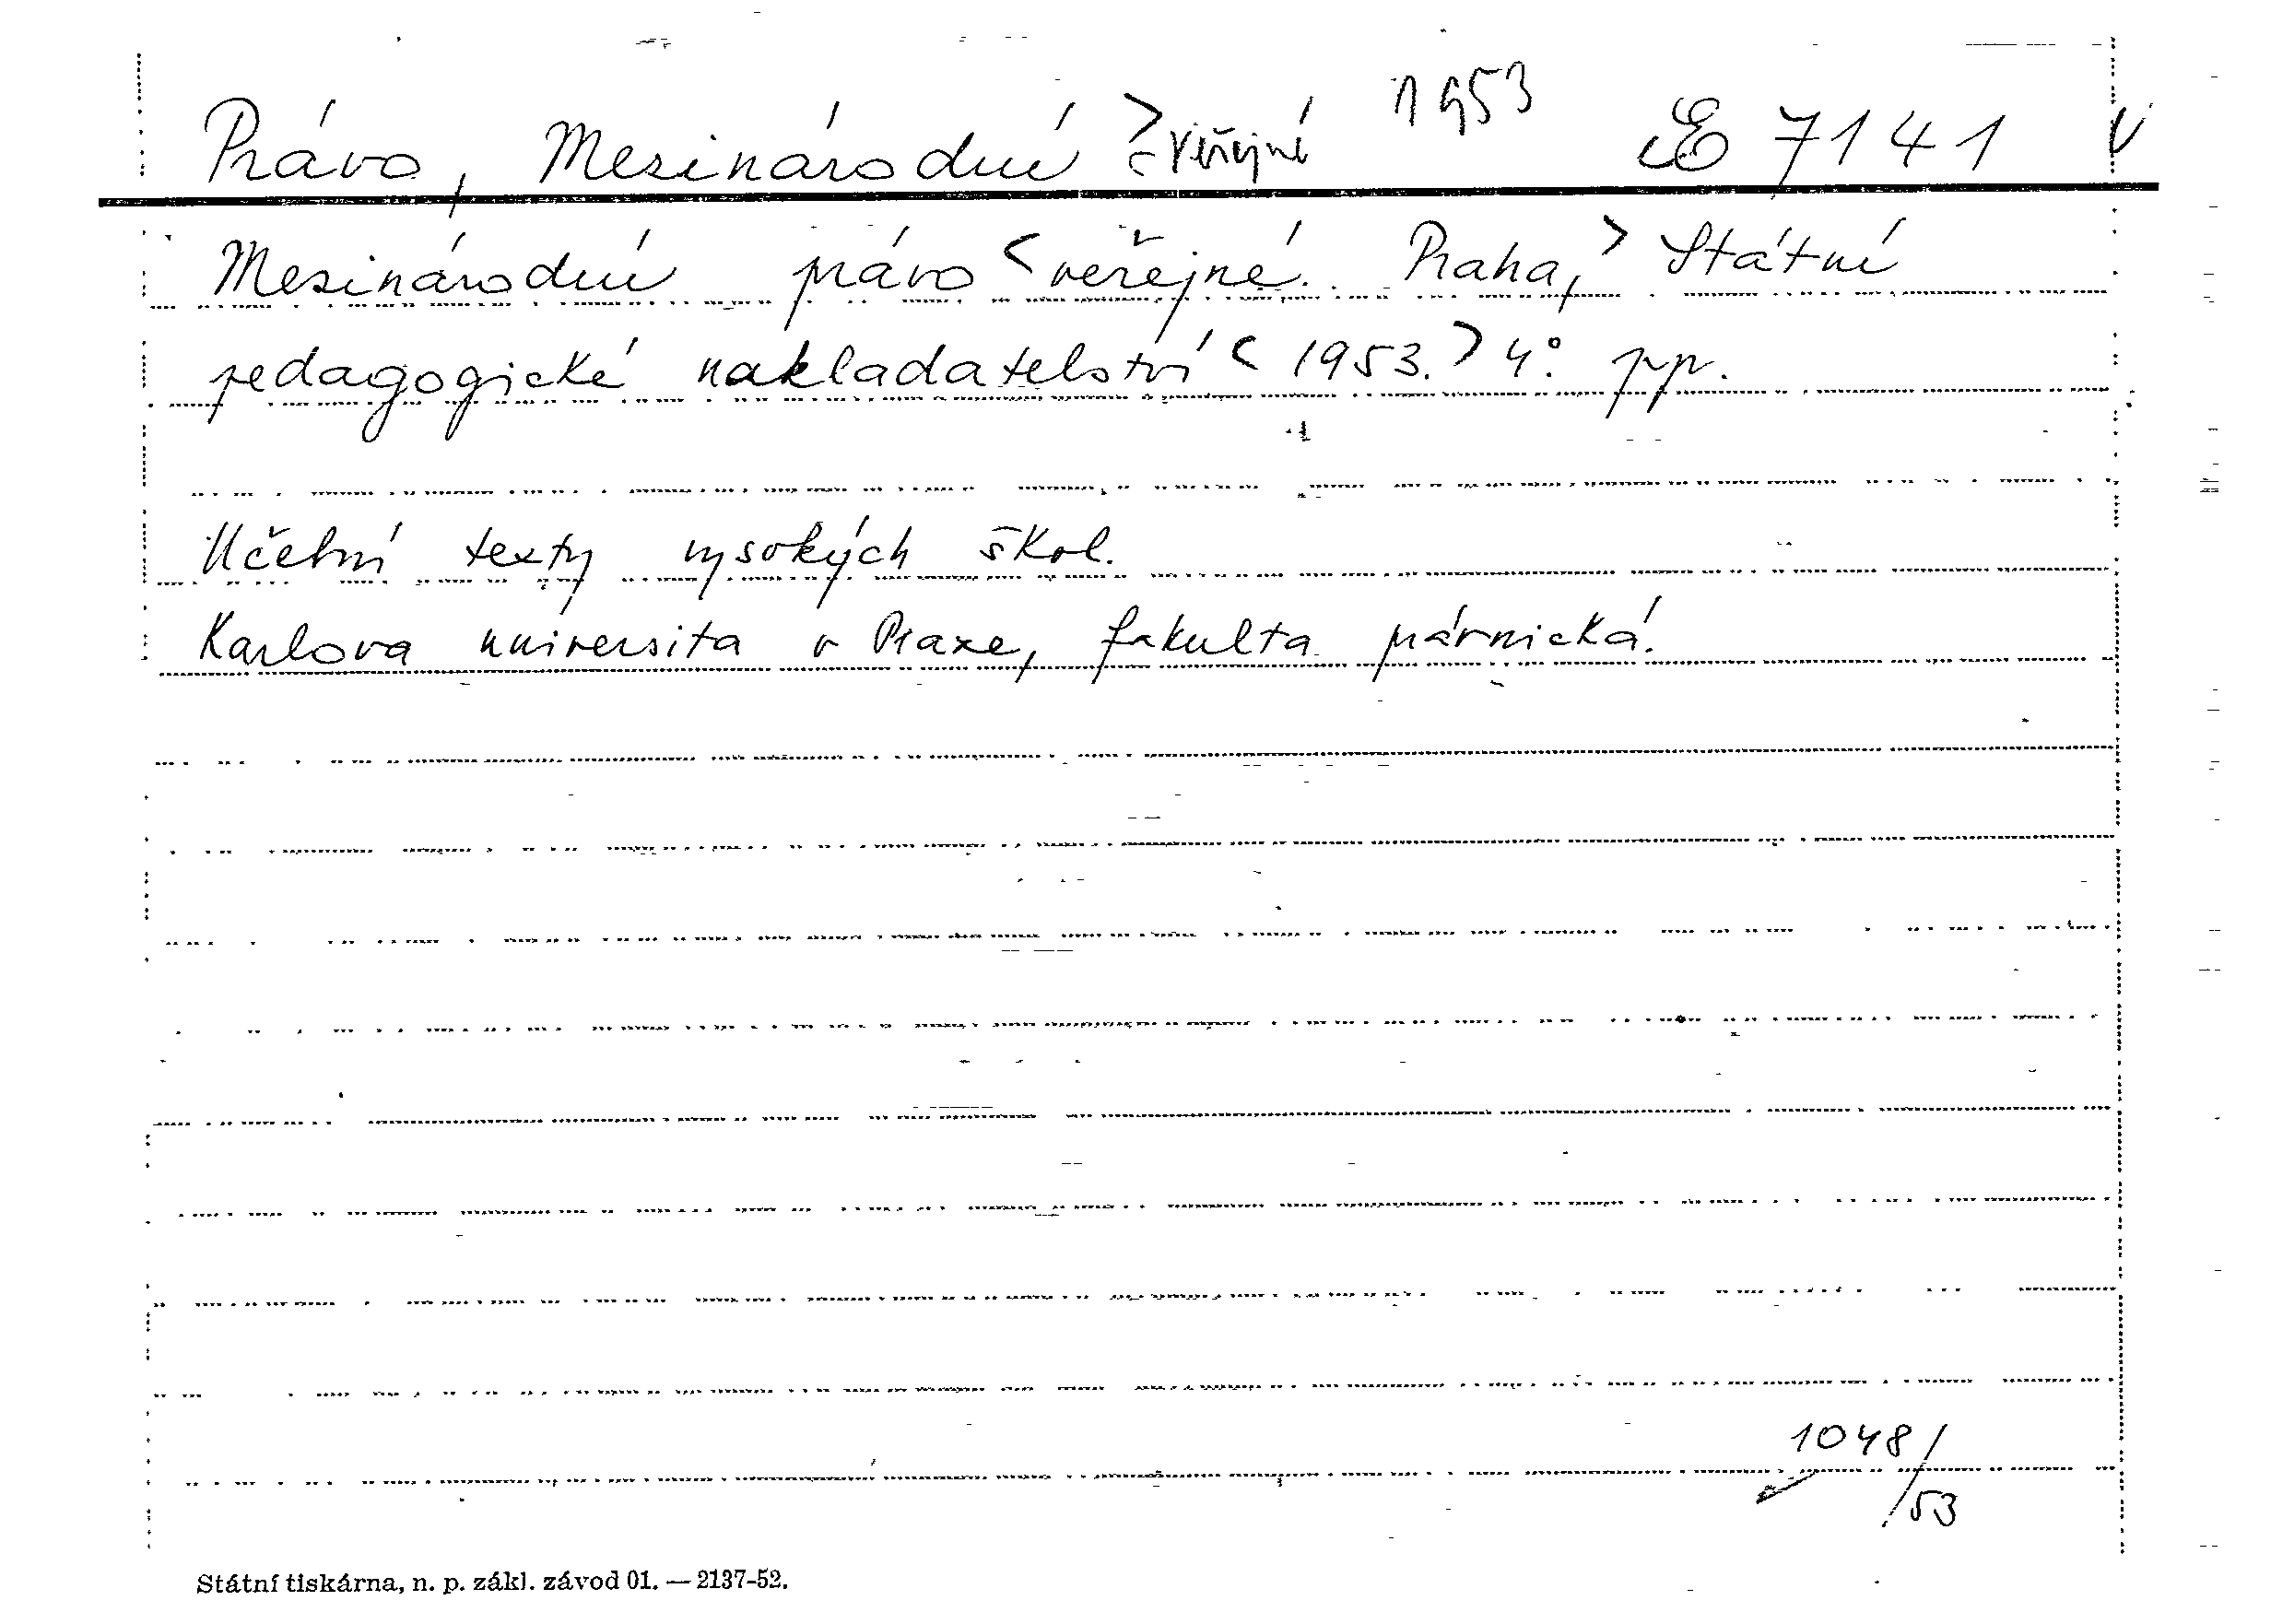 Právo, Mezinárodní > veřejné 1953 E 7141 V
Mezinárodní právo < veřejné. Praha, > Státní
pedagogické nakladatelství < 1953. > 4°. pp.
Učební texty vysokých škol.
Karlova universita v Praze, fakulta právnická.
1048/
/53
Státní tiskárna, n. p. zákl. závod 01. — 2137-52.